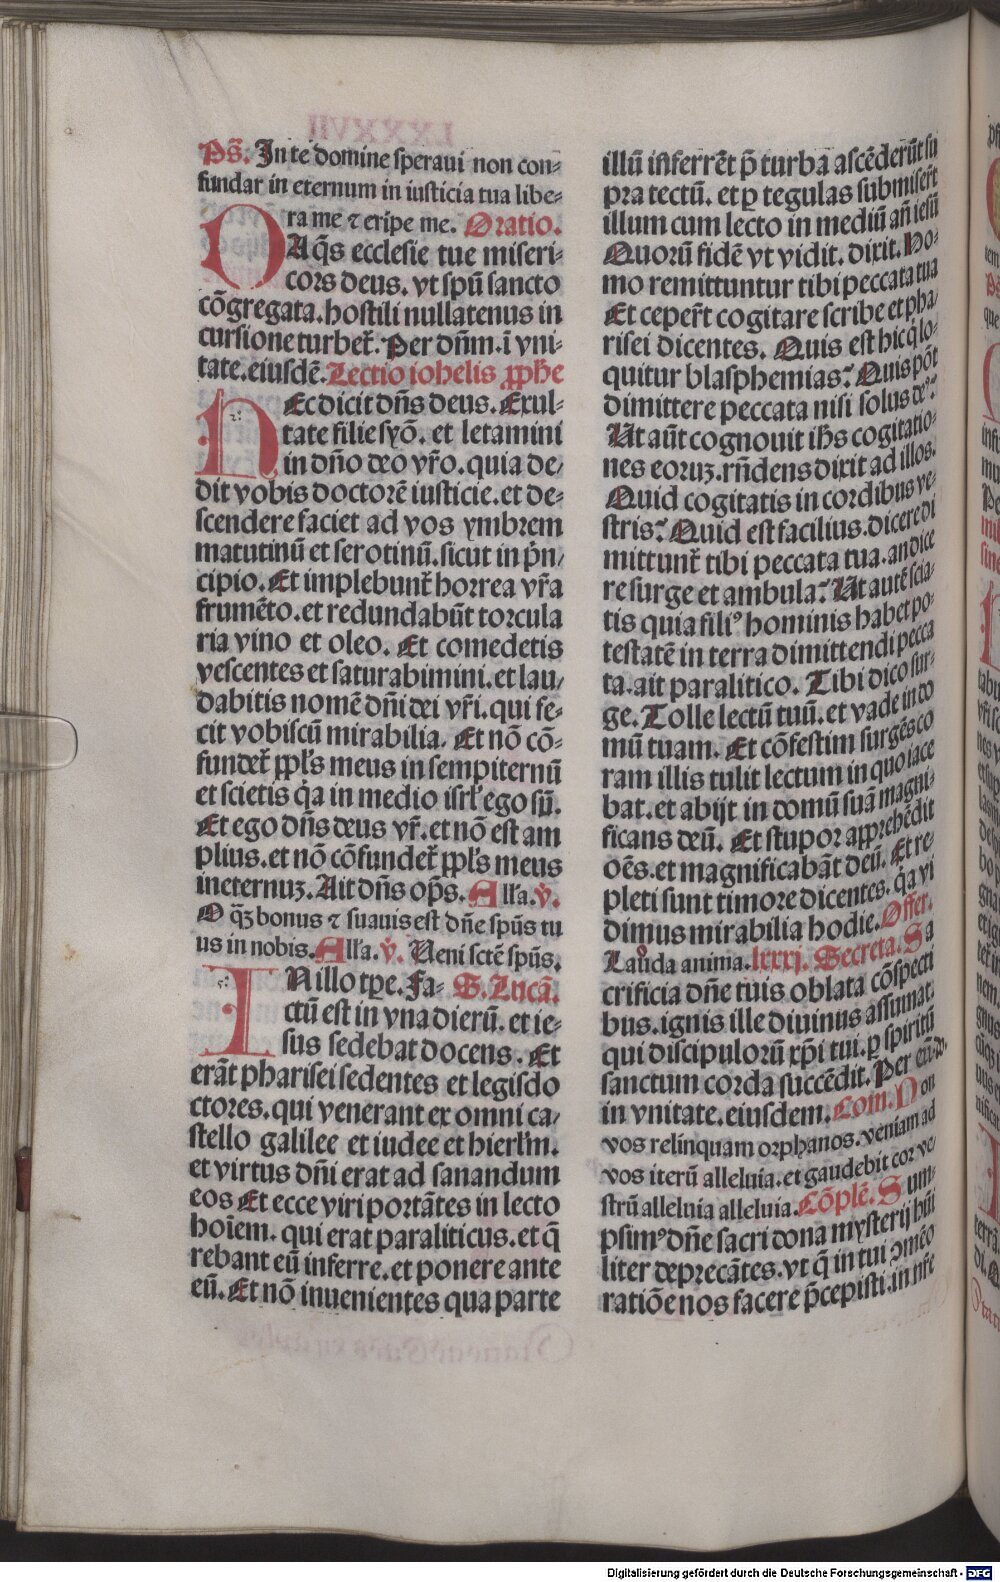 Ps̃. In te domine speraui non con⸗
fundar in eternum in iusticia tua libe⸗
ra me ⁊ eripe me. Oratio.
DA q̃s ecclesie tue miseri⸗
cors deus. vt spũ sancto
cõgregata. hostili nullatenus in
cursione turbet̃. Per dñm. ĩ vni⸗
tate. eiusdẽ. Lectio iohelis ꝓph̃e
HEc dicit dñs deus. Exul⸗
tate filie syõ. et letamini
in dño deo vr̃o. quia de⸗
dit vobis doctorẽ iusticie. et de⸗
scendere faciet ad vos ymbrem
matutinũ et serotinũ. sicut in p̃n⸗
cipio. Et implebunt̃ horrea vr̃a
frumẽto. et redundabũt torcula
ria vino et oleo. Et comedetis
vescentes et saturabimini. et lau⸗
dabitis nomẽ dñi dei vr̃i. qui fe⸗
cit vobiscũ mirabilia. Et nõ cõ⸗
fundet̃ ppl̃s meus in sempiternũ
et scietis q̃a in medio isrl̃ ego sũ.
Et ego dñs deus vr̃. et nõ est am
plius. et nõ cõfundet̃ ppl̃s meus
in eternuꝫ. Ait dñs op̃s. All̃a. ṽ.
O q̃ꝫ bonus ⁊ suauis est dñe spũs tu
us in nobis. All̃a. ṽ. Ueni sctẽ spũs.
IN illo tp̃e. Fa⸗ S. Lucã.
ctũ est in vna dierũ. et ie⸗
sus sedebat docens. Et
erãt pharisei sedentes et legisdo
ctores. qui venerant ex omni ca⸗
stello galilee et iudee et hierl̃m.
et virtus dñi erat ad sanandum
eos Et ecce viri portãtes in lecto
hoĩem. qui erat paraliticus. et q̃
rebant eũ inferre. et ponere ante
eũ. Et nõ inuenientes qua parte
illũ inferrẽt p̃ turba ascẽderũt su
pra tectũ. et ꝑ tegulas submiser̃t
illum cum lecto in mediũ añ iesũ
Quorũ fidẽ vt vidit. dixit. Ho⸗
mo remittuntur tibi peccata tua
Et ceper̃t cogitare scribe et pha⸗
risei dicentes. Quis est hic q̃ lo⸗
quitur blasphemias? Quis põt
dimittere peccata nisi solus deꝰ?
Ut aũt cognouit ih̃s cogitatio⸗
nes eoruꝫ. rñdens dixit ad illos.
Quid cogitatis in cordibus ve⸗
stris? Quid est facilius. dicere di
mittunt̃ tibi peccata tua. an dice
re surge et ambula? Ut autẽ scia⸗
tis quia filiꝰ hominis habet po⸗
testatẽ in terra dimittendi pecca
ta. ait paralitico. Tibi dico sur⸗
ge. Tolle lectũ tuũ. et vade in do
mũ tuam. Et cõfestim surgẽs co
ram illis tulit lectum in quo iace
bat. et abijt in domũ suã magni⸗
ficans deũ. Et stupor apprehẽdit
oẽs. et magnificabãt deũ. Et re⸗
pleti sunt timore dicentes. q̃a vi
dimus mirabilia hodie. Offer.
Lauda anima. lxxxj. Secreta. Sa
crificia dñe tuis oblata cõspecti
bus. ignis ille diuinus assumat.
qui discipulorũ xp̃i tui. ꝑ spiritũ
sanctum corda succẽdit. Per eũ.
in vnitate. eiusdem. Com. Non
vos relinquam orphanos. veniam ad
vos iterũ alleluia. et gaudebit cor ve⸗
strũ alleluia alleluia. Cõplẽ. Sum⸗
psimꝰ dñe sacri dona mysterij hũi
liter deprecãtes. vt q̃ in tui ↄmẽo
ratiõe nos facere p̃cepisti. in nr̃e
Digitalisierung gefördert durch die Deutsche Forschungsgemeinschaft - DFG